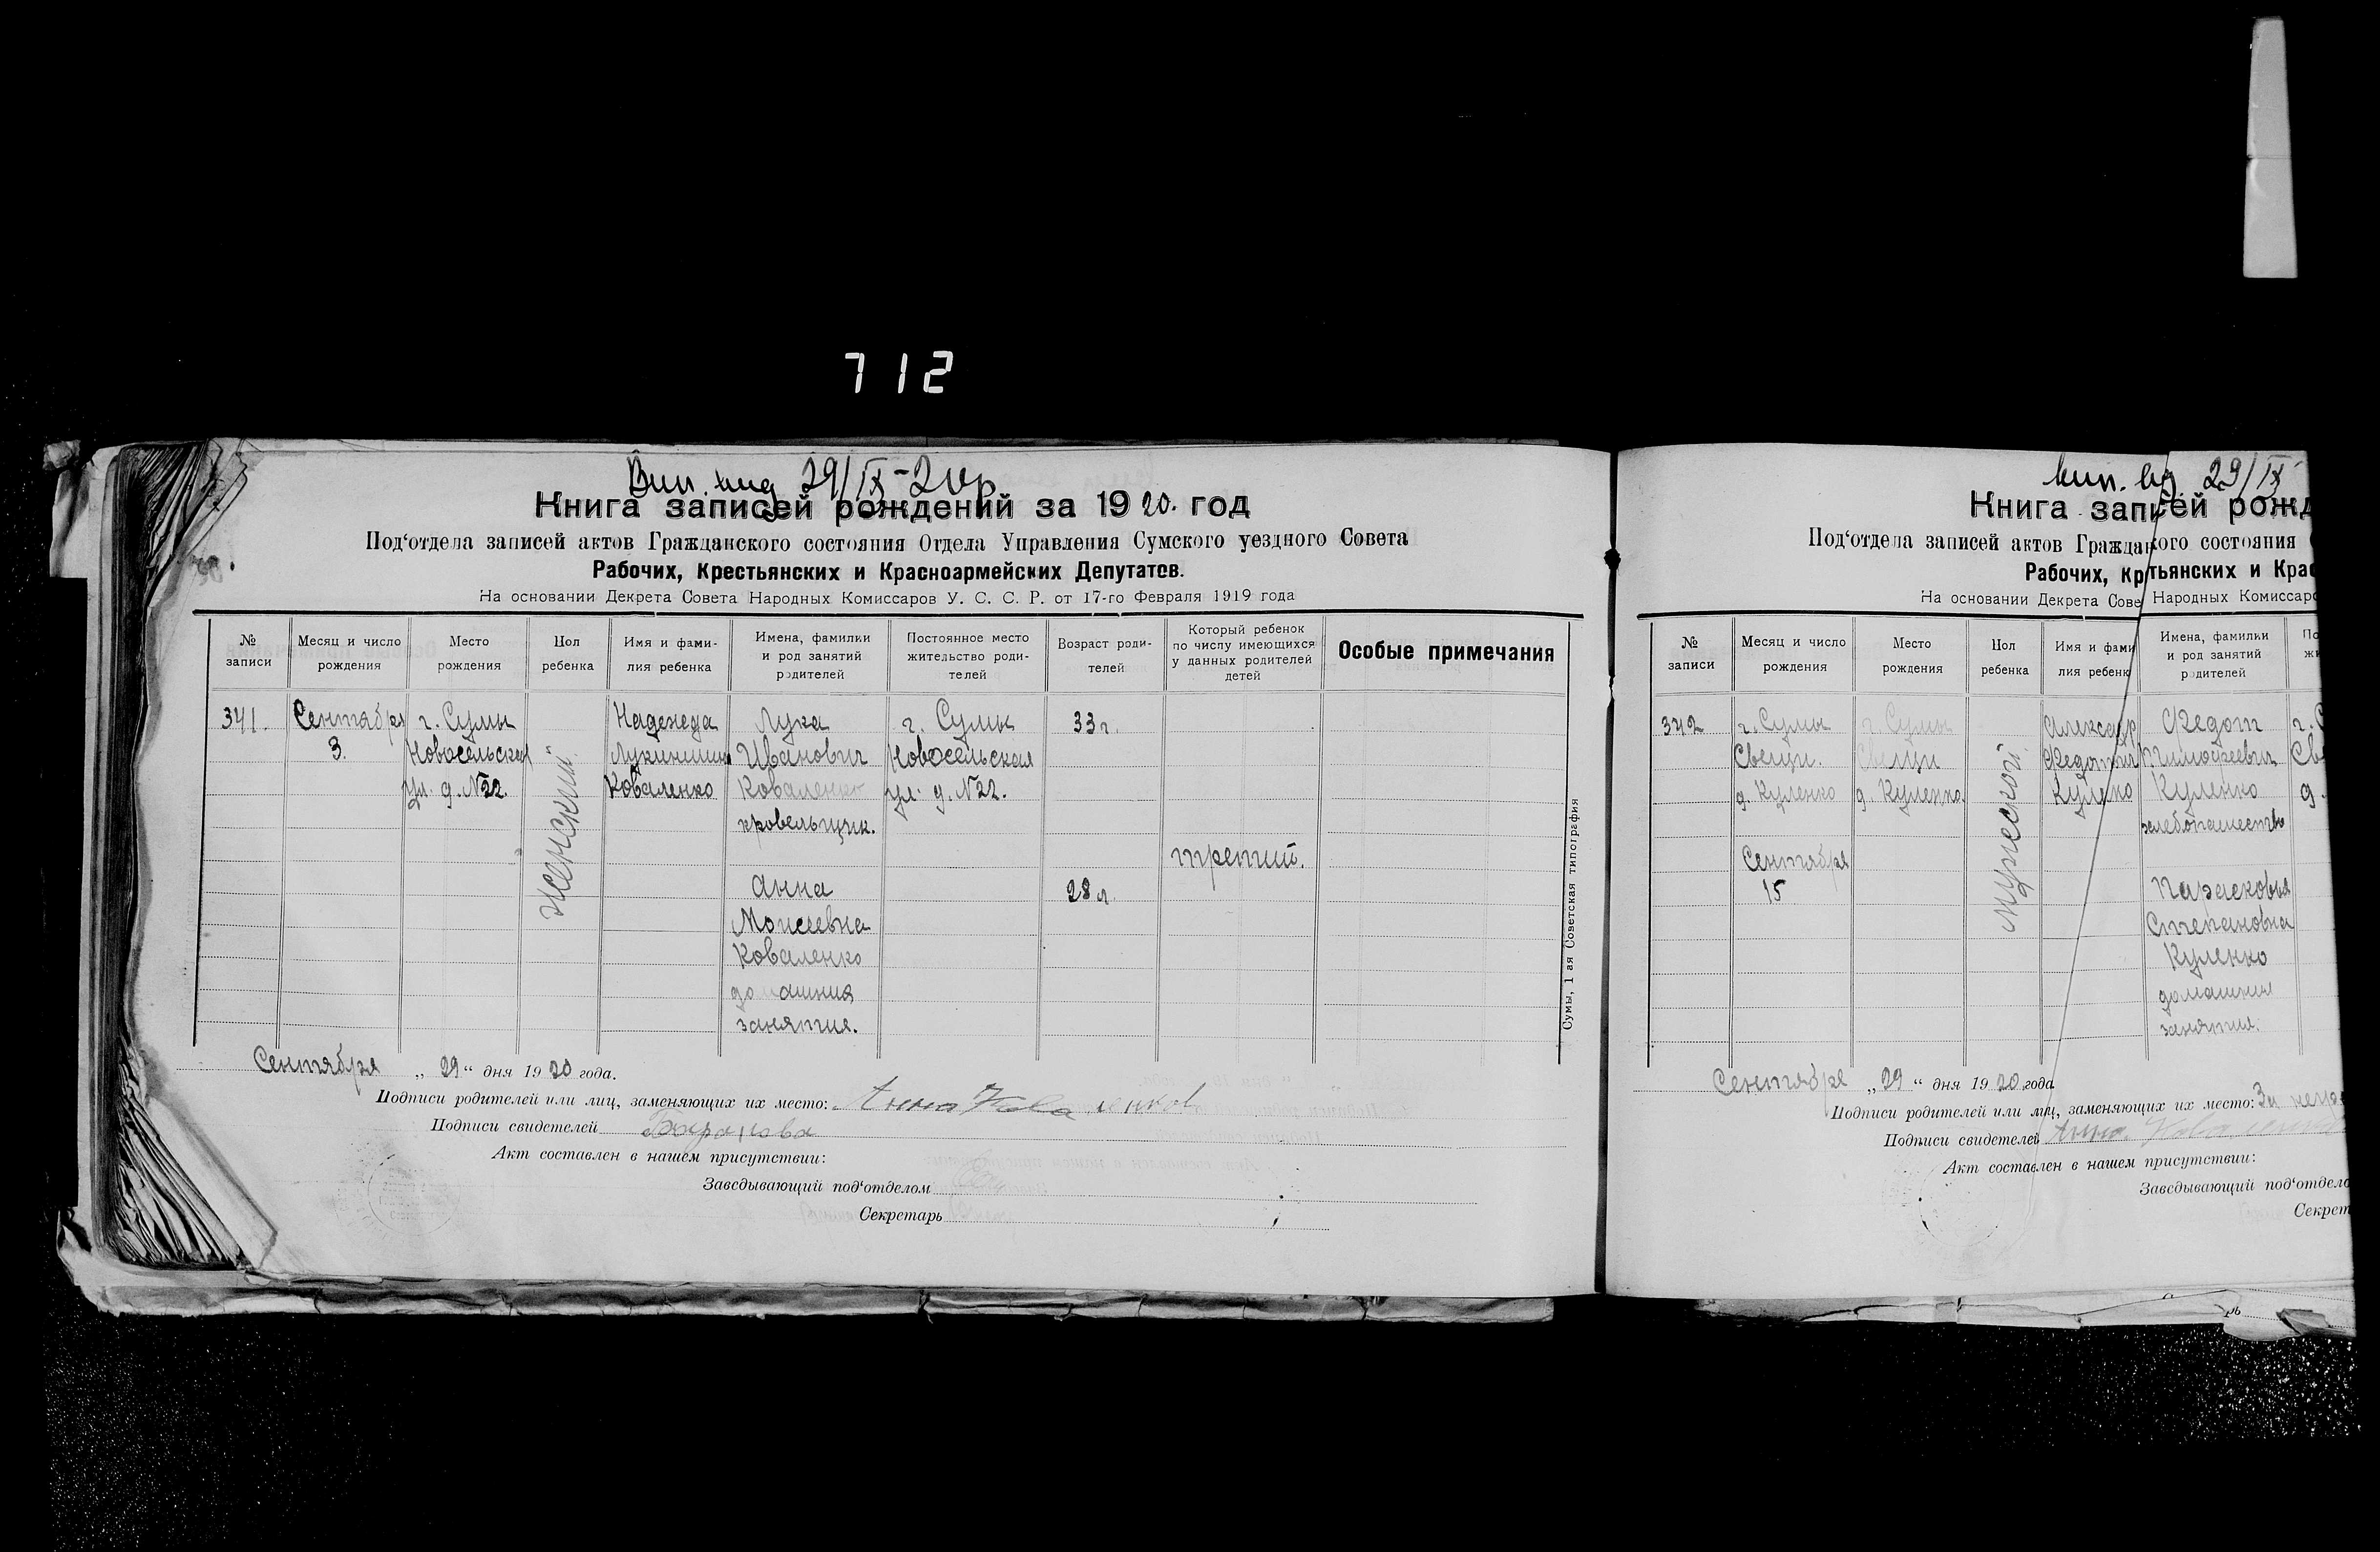 712
Вип. вид 29/IX-20р
Книга записей рождений за 1920. год
Под‘отдела записей актов Гражданского состояния Отдела Управления Сумского уездного Совета
Рабочих, Крестьянских и Красноармейских Депутатов.
На основании Декрета Совета Народных Комиссаров У. С. С. Р. от 17-го Февраля 1919 года
№ записи
Месяц и число рождения
Место рождения
Пол ребенка
Имя и фами-лия ребенка
Имена, фамилии и род занятий родителей
Постоянное место жительство роди-телей
Возраст роди-телей
Который ребенок по числу имеющихся у данных родителей детей
Особые примечания
341.
Сентября
3.
г. Сумы
Новосельская
ул. д. №22.
женский
Надежда
Лукинишна
Коваленко
Лука
Иванович
Коваленко
кровельщик.
Анна
Моисеевна
Коваленко
домашния
занятия.
г. Сумы
Новосельская
ул. д. №22.
33 г.
28 л.
третий.
Сумы, 1 ая Советская типография
Сентября „29“ дня 1920 года.
Подписи родителей или лиц, заменяющих их место: Анна
Подписи свидетелей
Акт составлен в нашем присутствии:
Заведывающий под‘отделом
Секретарь
вип. вид 29/IX
Книга записей рожд
Под‘отдела записей актов Гражданского состояния
Рабочих, Кр тьянских и Крас
На основании Декрета Сове Народных Комиссаро
№ записи
Месяц и число рождения
Место рождения
Пол ребенка
Имя и фами лия ребенк
Имена, фамилии и род занятий родителей
342
г. Сумы
Свещи.
д. Куленко
Сентября
15
г. Сумы
Свещи
д. Куленко.
мужеской
Александр
Федотий
Куленко
Федот
Тимофеевич
Куленко
хлебопашество
Парасковья
Степановна
Куленко
домашния
занятия.
г. С
Св
д.
Сентября „29“ дня 1920 года
Подписи родителей или лиц, заменяющих их место: За
Подписи свидетелей Анна
Акт составлен в нашем присутствии:
Заведывающий под‘отдело
Секрет
рь